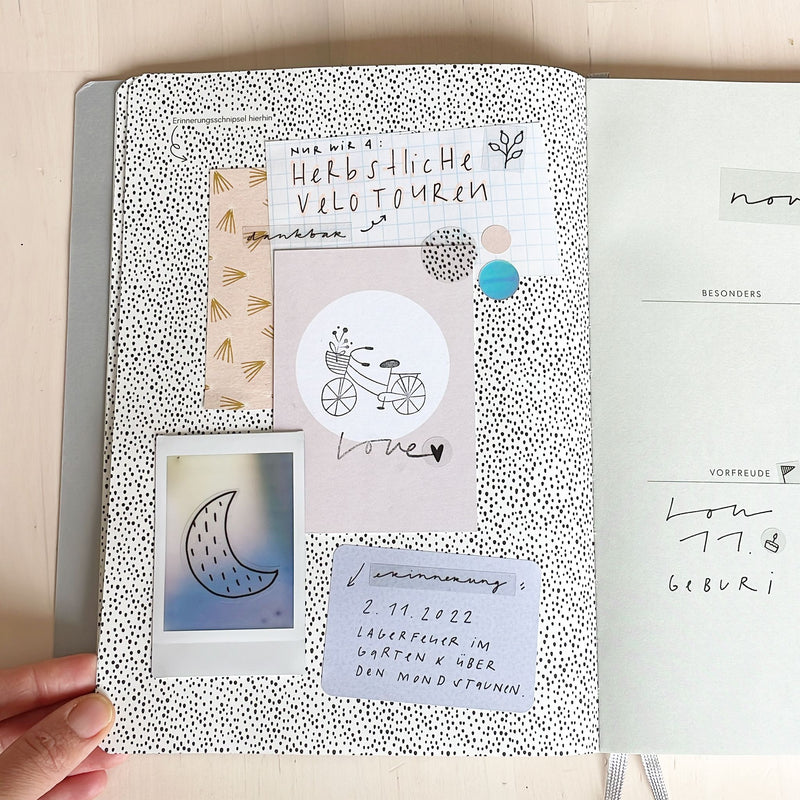 Erinnerungsschnipsel hierhin
NUR WIR 4:
HERBSTLICHE
VELO TOUREN
dankbar
Love
erinnerung:
2.11.2022
LAGERFEUER IM
GARTEN & ÜBER
DEN MOND STAUNEN.
nov
BESONDERS
VORFREUDE
Lou
11.
GEBURT